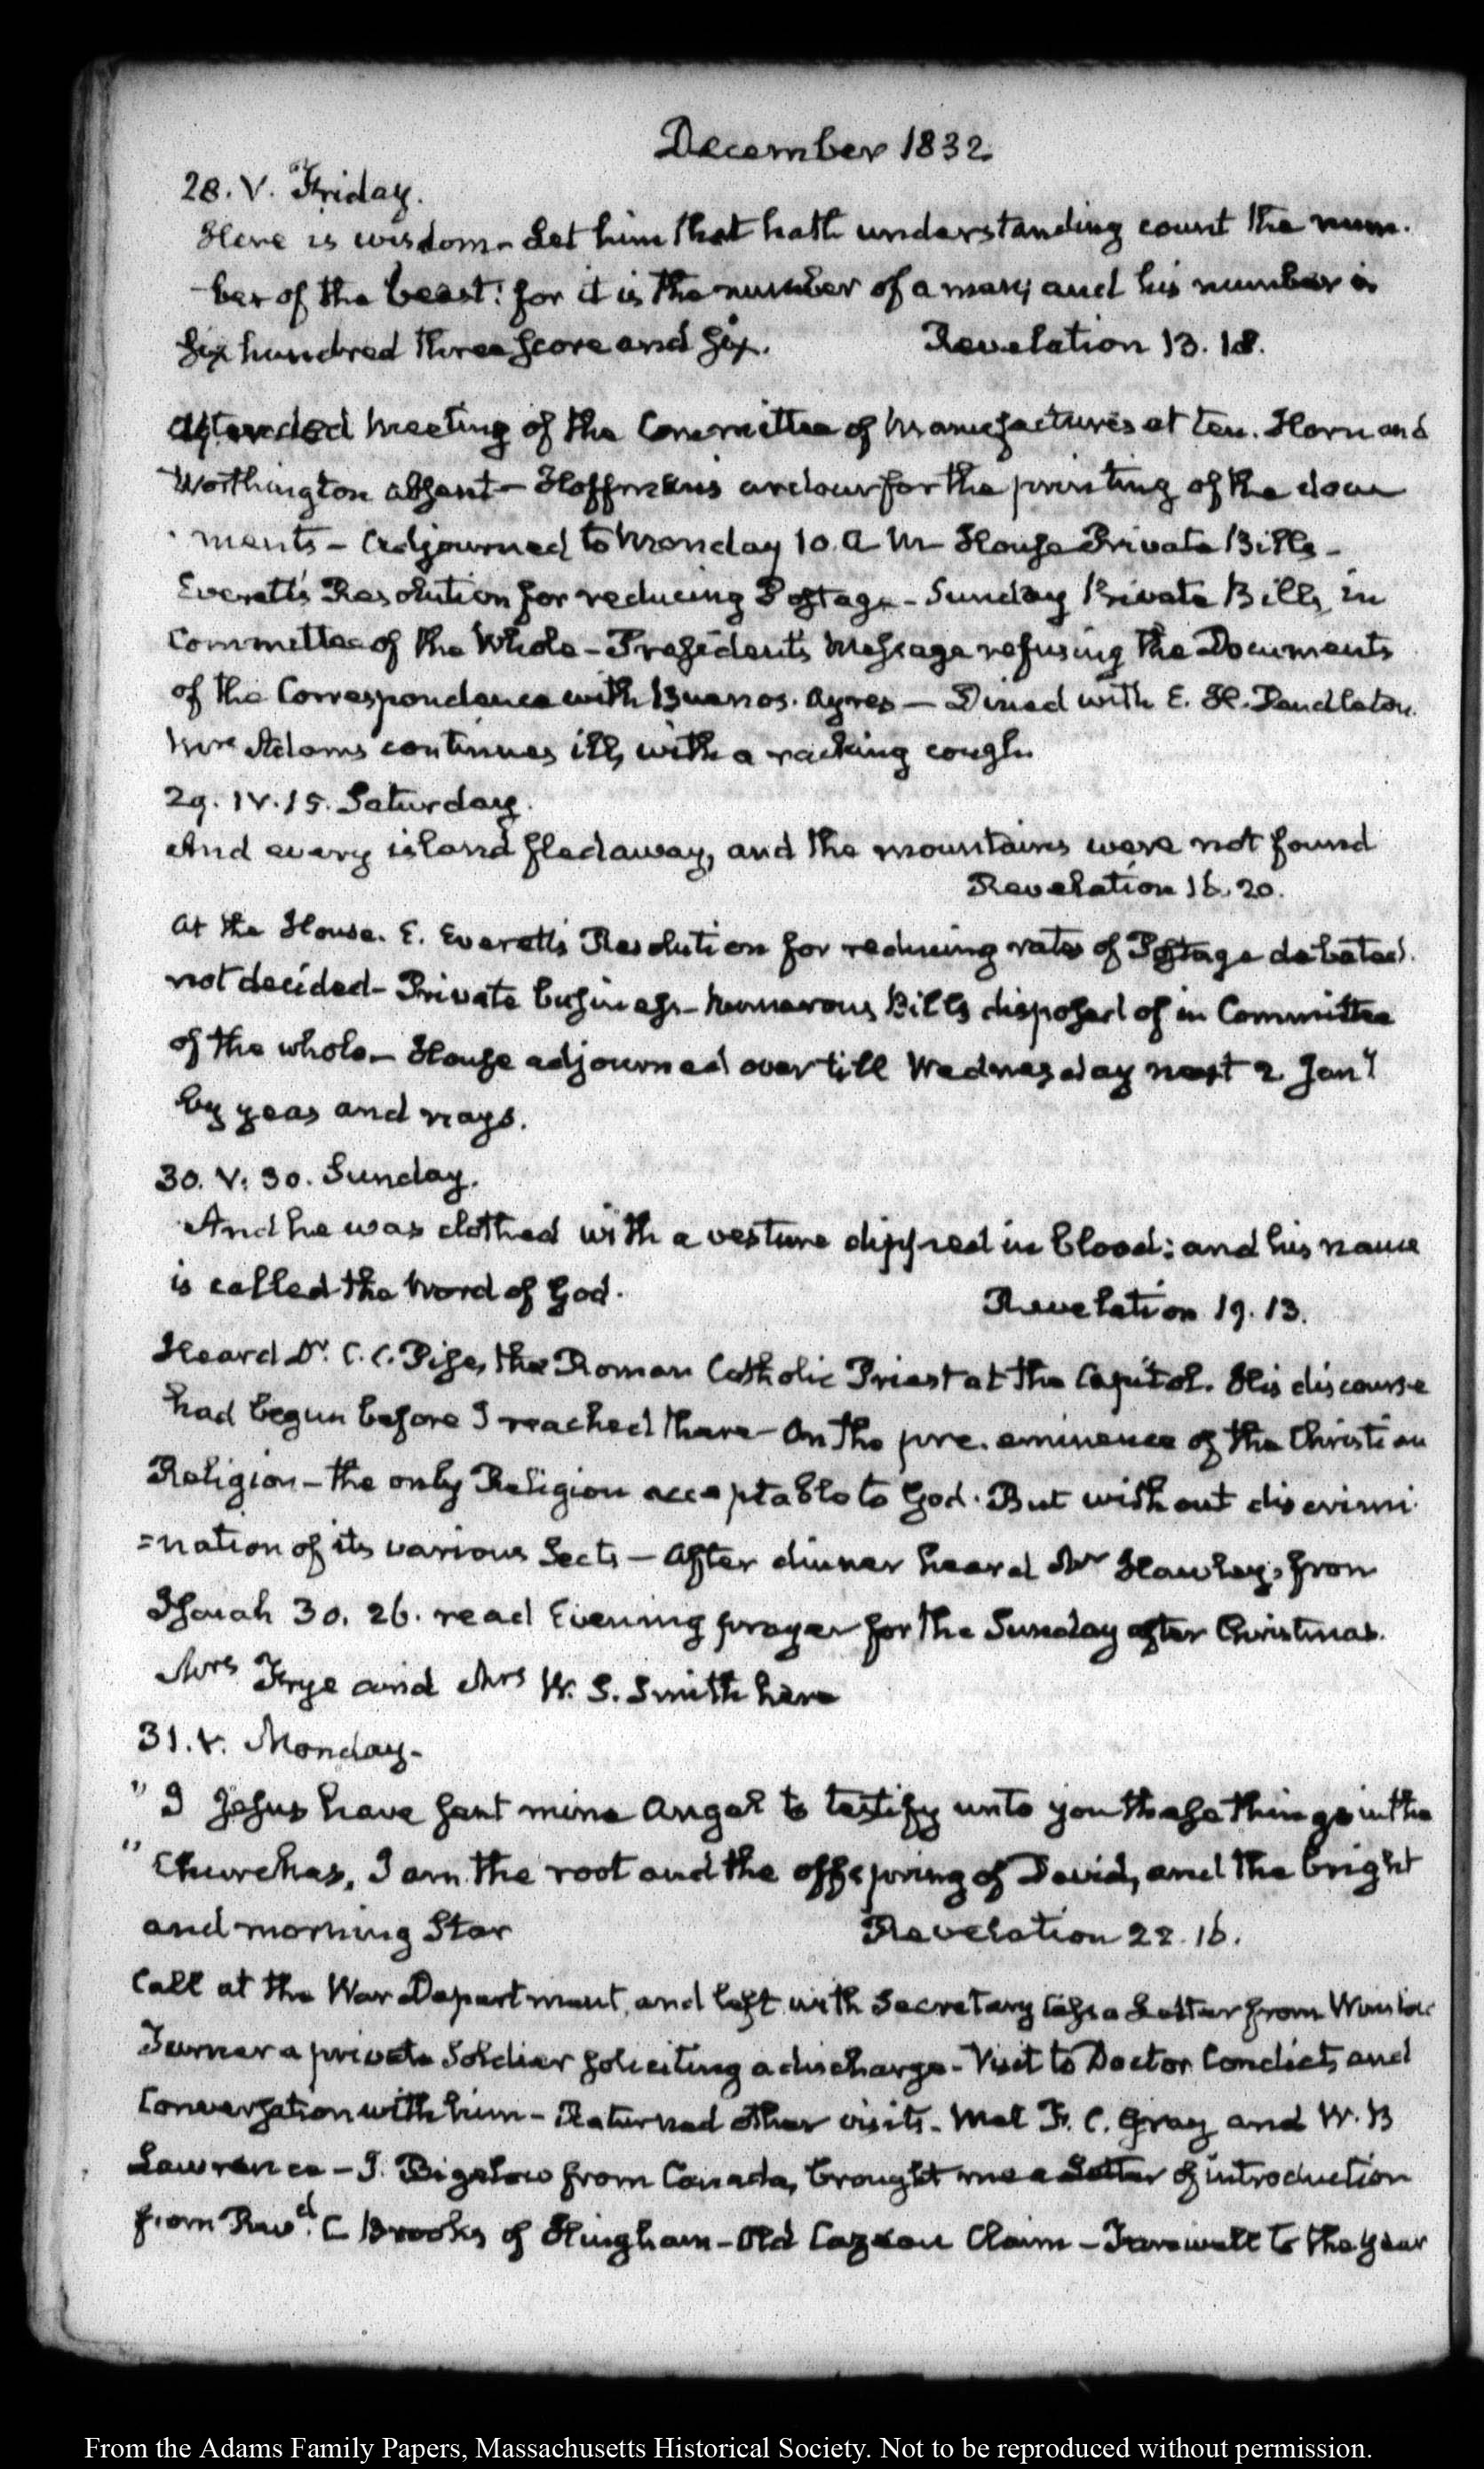 December 1832
28. V. Friday.
Here is wisdom. Let him that hath understanding count the num-
-ber of the beast: for it is the number of a man; and his number is
Six hundred three score and six. Revelation 13. 18.
Attended meeting of the Committee of Manufactures at ten. Horn and
Worthington absent — Hoffman's ardour for the printing of the docu
ments — Adjourned to Monday 10. A M — House Private Bills —
Everett's Resolution for reducing Postage — Sunday Private Bills, in
Committee of the Whole — President's Message refusing the Documents
of the Correspondence with Buenos. Ayres — Dined with E. H. Pendleton.
Mrs Adams continues ill, with a racking cough.
29. IV. 15. Saturday.
And every island fled away, and the mountains were not found
Revelation 16. 20.
At the House. E. Everett's Resolution for reducing rates of Postage debated.
not decided — Private business — numerous Bills disposed of in Committee
of the whole — House adjourned over till Wednesday next 2 Jany
by yeas and nays.
30. V: 30. Sunday.
And he was clothed with a vesture dipped in blood: and his name
is called the Word of God. Revelation 19. 13.
Heard Dr. C. C. Pise, the Roman Catholic Priest at the Capitol. His discourse
had begun before I reached there — On the pre. eminence of the Christian
Religion — the only Religion acceptable to God. But without discrimi
=nation of its various Sects — After dinner heard Mr Hawley, from
Isaiah 30. 26. read Evening prayer for the Sunday after Christmas.
Mrs Frye and Mrs W. S. Smith here
31. V. Monday —
" I Jesus have sent mine Angel to testify unto you these things in the
" Churches, I am the root and the offspring of David, and the bright
and morning Star Revelation 22. 16.
Call at the War Department, and left with Secretary Cass a Letter from
Turner a private Soldier soliciting a discharge — Visit to Doctor Condict, and
Conversation with him — Returned other visits — Met F. C. Gray and W. B
Lawrence — J. Bigelow from Canada, brought me a Letter of introduction
from Revd. C Brooks of Hingham — Old Cazeau Claim — Farewell to the year
From the Adams Family Papers, Massachusetts Historical Society. Not to be reproduced without permission.